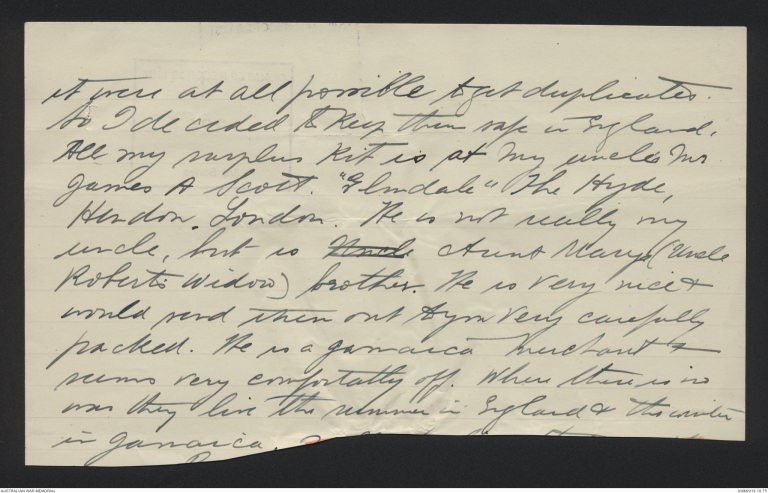 it were at all possible to get duplicates.
So I decided to keep them safe in England.
All my surplus kit is at my uncle's Mr
James A Scott. "Glendale" The Hyde,
Hendon. London. He is not really my
uncle, but is Uncle Aunt Mary's (Uncle
Robert's Widow) brother. He is very nice &
would send them out to you very carefully
packed. He is a Jamaica merchant &
seems very comfortably off. When there is no
war they live the summer in England & the winter
in Jamaica.
AUSTRALIAN WAR MEMORIAL